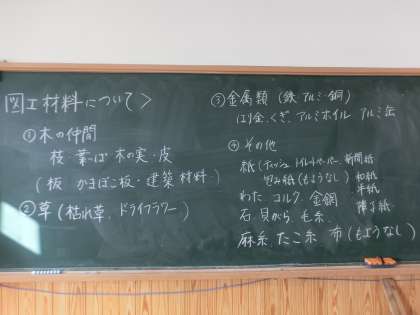 図工材料について>
①木の仲間
枝 葉っぱ 木の実・皮
(板 かまぼこ板・建築材料)
②草(枯れ草、ドライフラワー)
③金属類(鉄 アルミ・銅)
はり金、くぎ、アルミホイル アルミ缶
④その他
紙(ティッシュ トイレットペーパー 新聞紙
包み紙(もようなし) 和紙
半紙
わた コルク 金網 障子紙
石 貝がら 毛糸
麻糸 たこ糸 布(もようなし)